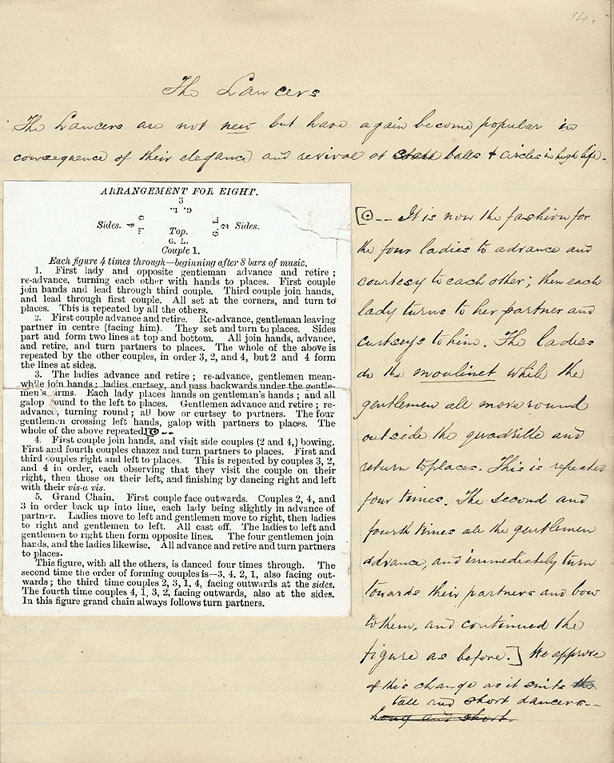 14.
The Lancers
The Lancers are not new but have again become popular in
consequence of their elegance and revival at state balls & circles in high life.
ARRANGEMENT FOR EIGHT.
3
G. L.
Sides. 4 G. L. Top. L. G. 2 Sides.
G. L.
Couple 1.
Each figure 4 times through—beginning after 8 bars of music.
1. First lady and opposite gentleman advance and retire;
re-advance, turning each other with hands to places. First couple
join hands and lead through third couple. Third couple join hands,
and lead through first couple. All set at the corners, and turn to
places. This is repeated by all the others.
2. First couple advance and retire. Re-advance, gentleman leaving
partner in centre (facing him). They set and turn to places. Sides
part and form two lines at top and bottom. All join hands, advance,
and retire, and turn partners to places. The whole of the above is
repeated by the other couples, in order 3, 2, and 4, but 2 and 4 form
the lines at sides.
3. The ladies advance and retire; re-advance, gentlemen mean-
while join hands; ladies curtsey, and pass backwards under the gentle-
men's arms. Each lady places hands on gentleman's hands; and all
galop round to the left to places. Gentlemen advance and retire; re-
advance, turning round; all bow or curtsey to partners. The four
gentlemen crossing left hands, galop with partners to places. The
whole of the above repeated
4. First couple join hands, and visit side couples (2 and 4,) bowing.
First and fourth couples chazez and turn partners to places. First and
third couples right and left to places. This is repeated by couples 3, 2,
and 4 in order, each observing that they visit the couple on their
right, then those on their left, and finishing by dancing right and left
with their vis-a vis.
5. Grand Chain. First couple face outwards. Couples 2, 4, and
3 in order back up into line, each lady being slightly in advance of
partner. Ladies move to left and gentlemen move to right, then ladies
to right and gentlemen to left. All cast off. The ladies to left and
gentlemen to right then form opposite lines. The four gentlemen join
hands, and the ladies likewise. All advance and retire and turn partners
to places.
This figure, with all the others, is danced four times through. The
second time the order of forming couples is—3, 4, 2, 1, also facing out-
wards; the third time couples 2, 3, 1, 4, facing outwards at the sides.
The fourth time couples 4, 1, 3, 2, facing outwards, also at the sides.
In this figure grand chain always follows turn partners.
[⊙-- It is now the fashion for
the four ladies to advance and
courtesy to each other; then each
lady turns to her partner and
curtseys to him. The ladies
do the moulinet while the
gentlemen all move round
outside the quadrille and
return to places. This is repeated
four times. The second and
fourth times all the gentlemen
advance, and immediately turn
towards their partners and bow
to them, and continued the
figure as before.] We approve
of this change as it suits the
tall and short dancers--
long and short.